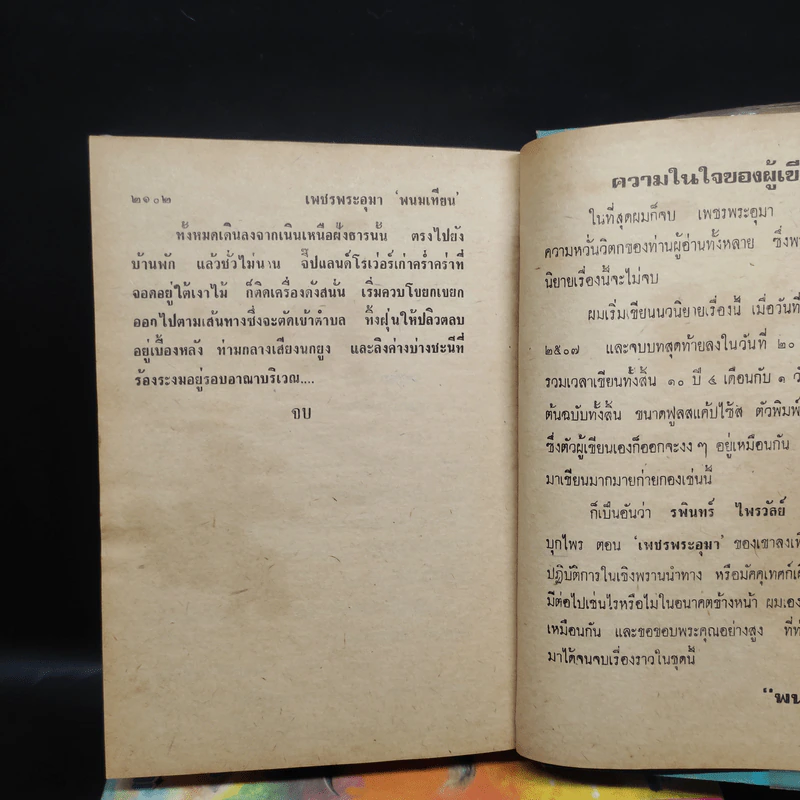 ๒๑๐๒ เพชรพระอุมา 'พนมเทียน'
ทั้งหมดเดินลงจากเนินเหนือฝั่งธารนั้น ตรงไปยัง
บ้านพัก แล้วชั่วไม่นาน จิ๊ปแลนด์โรเว่อร์เก่าคร่ำคร่าที่
จอดอยู่ใต้เงาไม้ ก็ติดเครื่องดังสนั่น เริ่มควบโขยกเขยก
ออกไปตามเส้นทางซึ่งจะตัดเข้าตำบล ทิ้งฝุ่นให้ปลิวตลบ
อยู่เบื้องหลัง ท่ามกลางเสียงนกยูง และลิงค่างบ่างชะนีที่
ร้องระงมอยู่รอบอาณาบริเวณ....
จบ
ความในใจของผู้เขี
ในที่สุดผมก็จบ เพชรพระอุมา
ความหวั่นวิตกของท่านผู้อ่านทั้งหลาย ซึ่งพ
นิยายเรื่องนี้จะไม่จบ
ผมเริ่มเขียนนวนิยายเรื่องนี้ เมื่อวันที่
๒๕๐๗ และจบบทสุดท้ายลงในวันที่ ๒๐
รวมเวลาเขียนทั้งสิ้น ๑๐ ปี ๔ เดือนกับ ๑ วั
ต้นฉบับทั้งสิ้น ขนาดฟูลสแค๊ปไซ้ส์ ตัวพิมพ์
ซึ่งตัวผู้เขียนเองก็ออกจะงง ๆ อยู่เหมือนกัน
มาเขียนมากมายก่ายกองเช่นนี้
ก็เป็นอันว่า รพินทร์ ไพรวัลย์
บุกไพร ตอน 'เพชรพระอุมา' ของเขาลงเพี
ปฏิบัติการในเชิงพรานนำทาง หรือมัคคุเทศก์เดิ
มีต่อไปเช่นไรหรือไม่ในอนาคตข้างหน้า ผมเอง
เหมือนกัน และขอขอบพระคุณอย่างสูง ที่ท่
มาได้จนจบเรื่องราวในชุดนี้
"พน